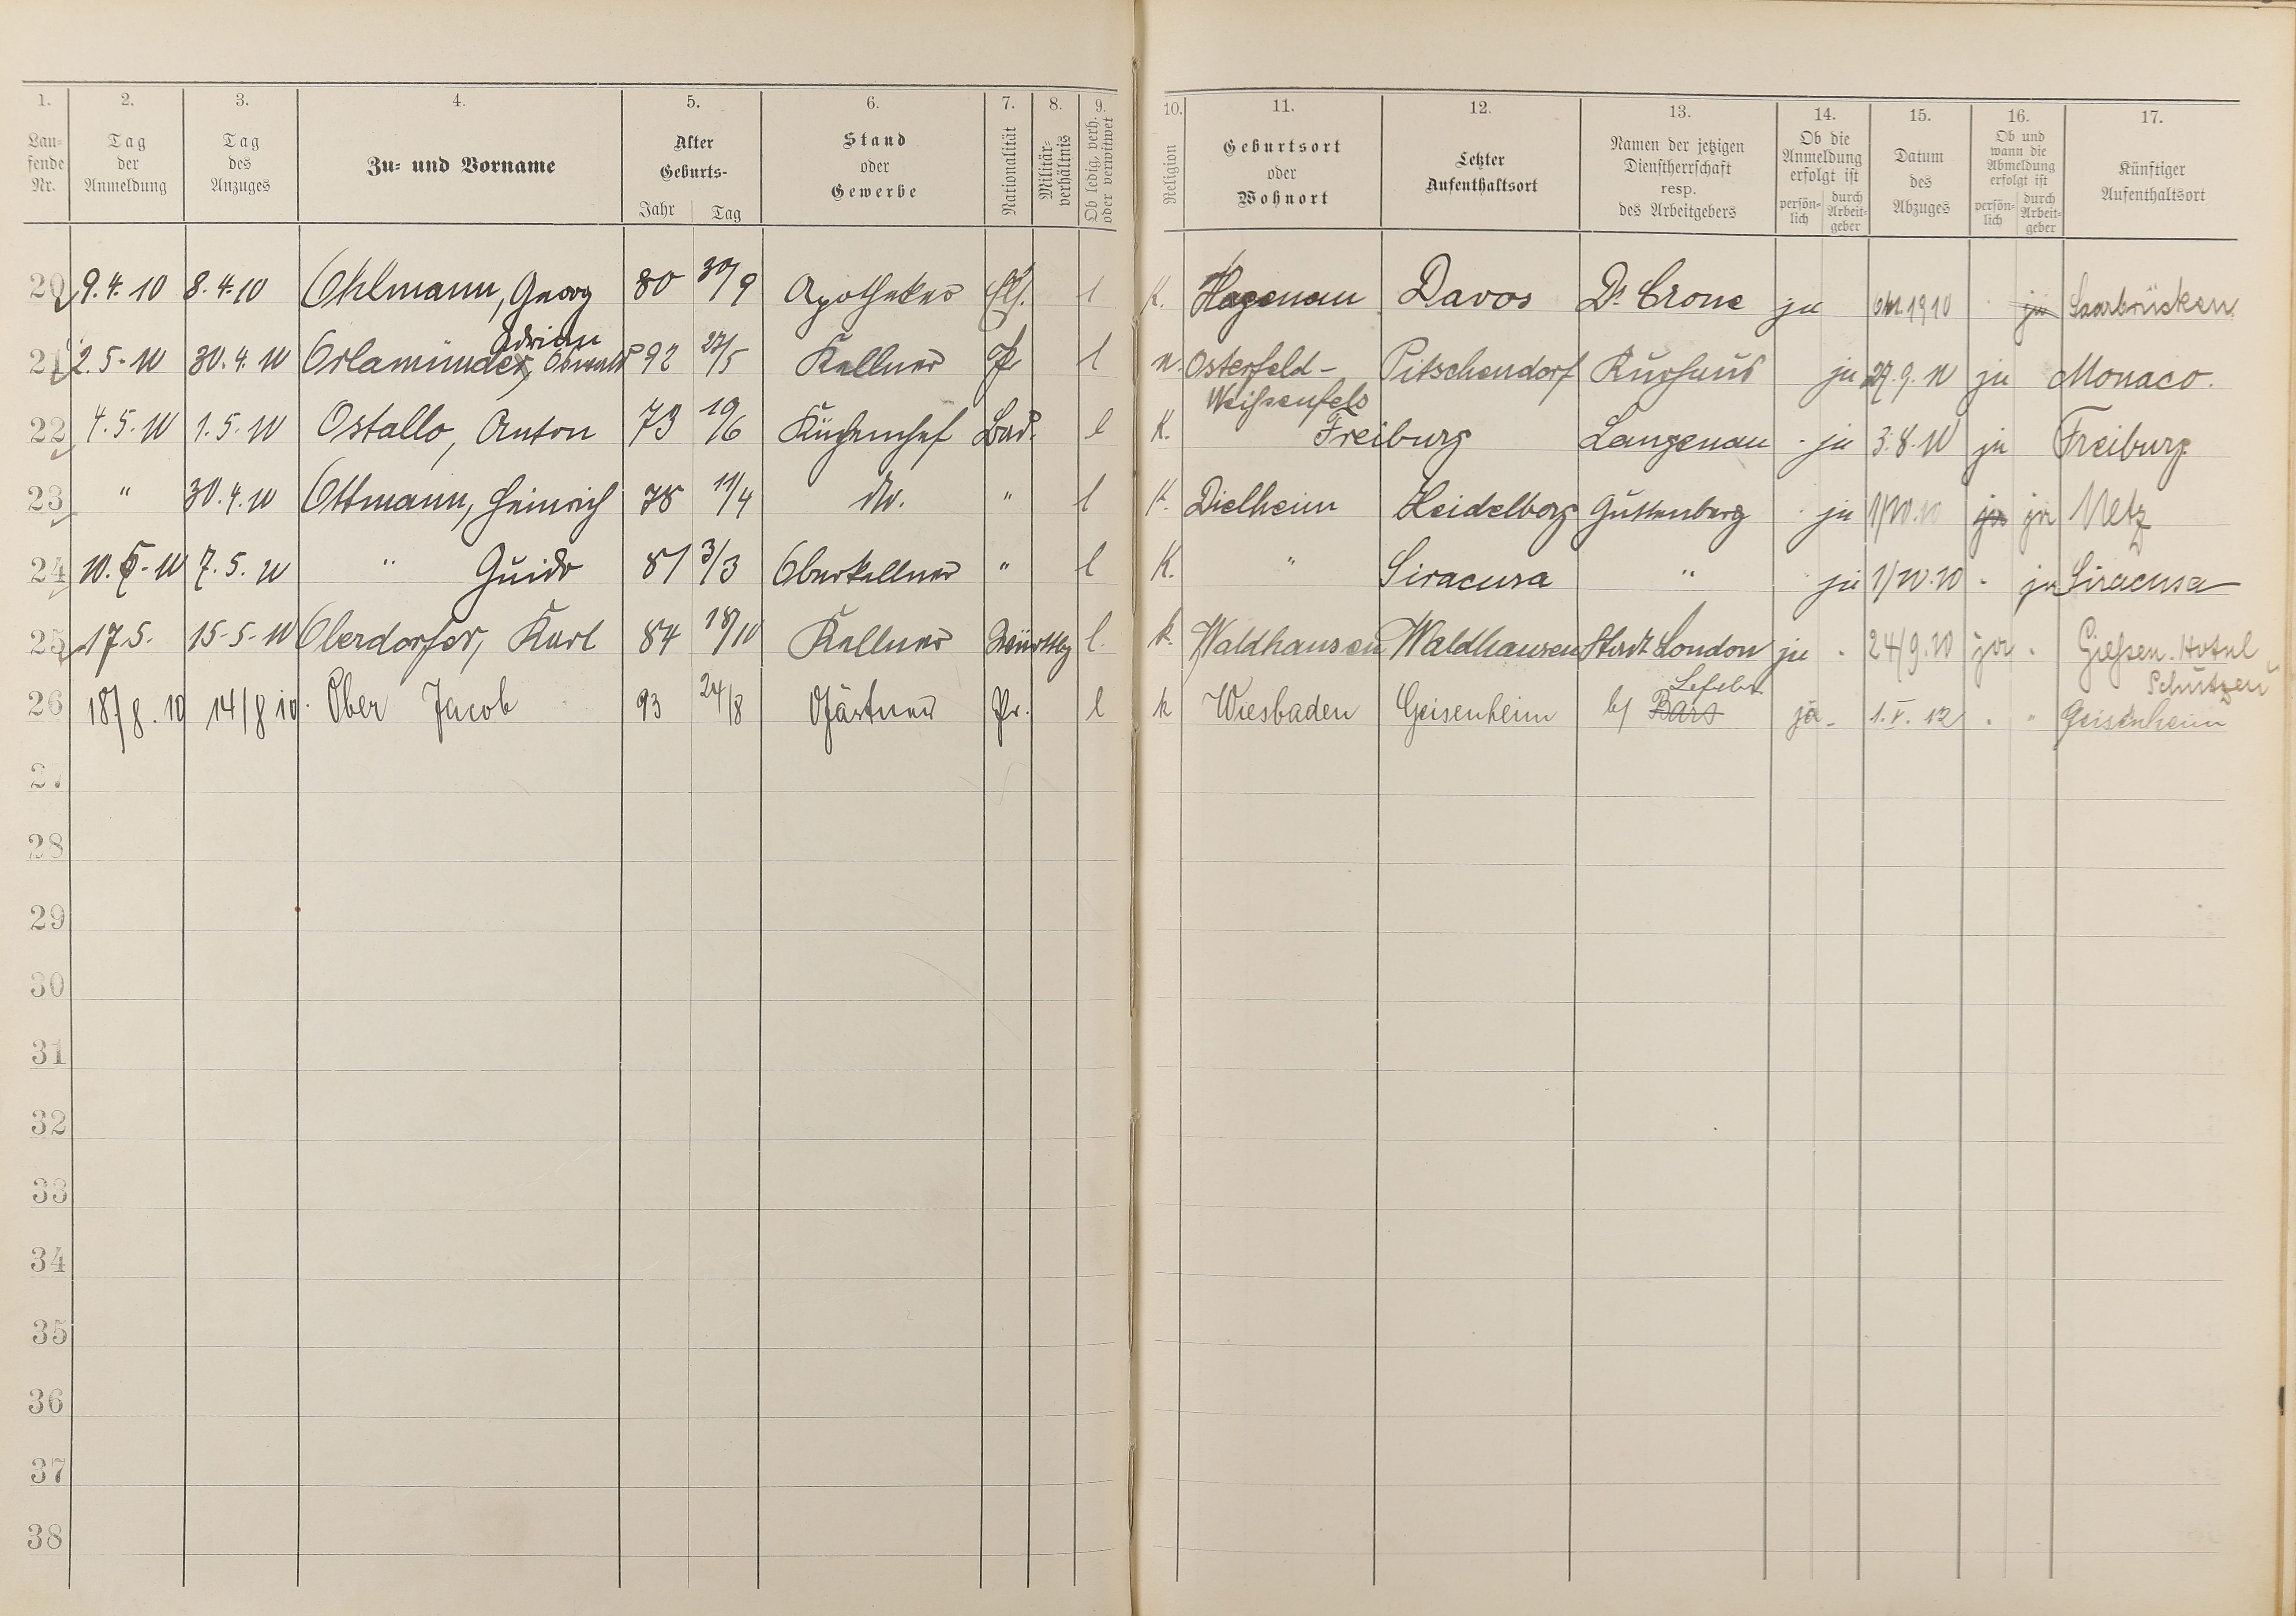 1. 2. 3. 4. 5. 6. 7. 8. 9. 10. 11. 12. 13. 14. 15. 16. 17.
Lau-
fende
Nr.
Tag
der
Anmeldung
Tag
des
Anzuges
Zu- und Vorname
Alter
Geburts-
Jahr Tag
Stand
oder
Gewerbe
Nationalität
Militär-
verhältnis
Ob ledig, verh.
oder verwitwet
Religion
Geburtsort
oder
Wohnort
Letzter
Aufenthaltsort
Namen der jetzigen
Dienstherrschaft
resp.
des Arbeitgebers
Ob die
Anmeldung
erfolgt ist
persön-
lich
durch
Arbeit-
geber
Datum
des
Abzuges
Ob und
wann die
Abmeldung
erfolgt ist
persön-
lich
durch
Arbeit-
geber
Künftiger
Aufenthaltsort
20 9.4.10 8.4.10 Ohlmann, Georg 80 30/9 Apotheker Els. l K. Hagenau Davos Dr. Crone ja 1910 ja Saarbrücken
Adrian
21 2.5.10 30.4.10 Orlamünder, Oswald 92 27/5 Kellner Pr l n. Osterfeld- Pitschendorf Kurhaus ja 27.9.10 ja Monaco.
Weißenfels
22 4.5.10 1.5.10 Ostallo, Anton 73 19/6 Küchenchef Bad. l K. Freiburg Langenau ja 3.8.10 ja Freiburg
23 " 30.4.10 Ottmann, Heinrich 78 11/4 do. " l K. Dielheim Heidelberg Guttenberg ja 1/10.10 ja ja Metz
24 10.5.10 7.5.10 " Guido 81 3/3 Oberkellner " l K. " Siracusa " ja 1/10.10 ja Siracusa
25 17.5. 15.5.10 Oberdorfer, Karl 84 18/10 Kellner Württbg l. k. Waldhausen Waldhausen Stadt London ja 24/9.10 ja Gießen. Hotel
Schützen
26 18/8.10 14/8 10. Ober Jacob 93 24/8 Gärtner Pr. l k Wiesbaden Geisenheim b/ Bars ja 1.V.12 " Geisenheim
27
28
29
30
31
32
33
34
35
36
37
38